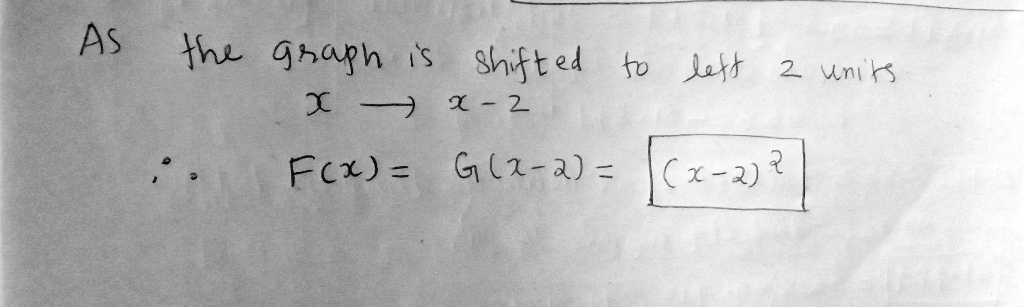 As the graph is shifted to left 2 units
x → x - 2
∴ F(x) = G(x-2) = (x-2)²